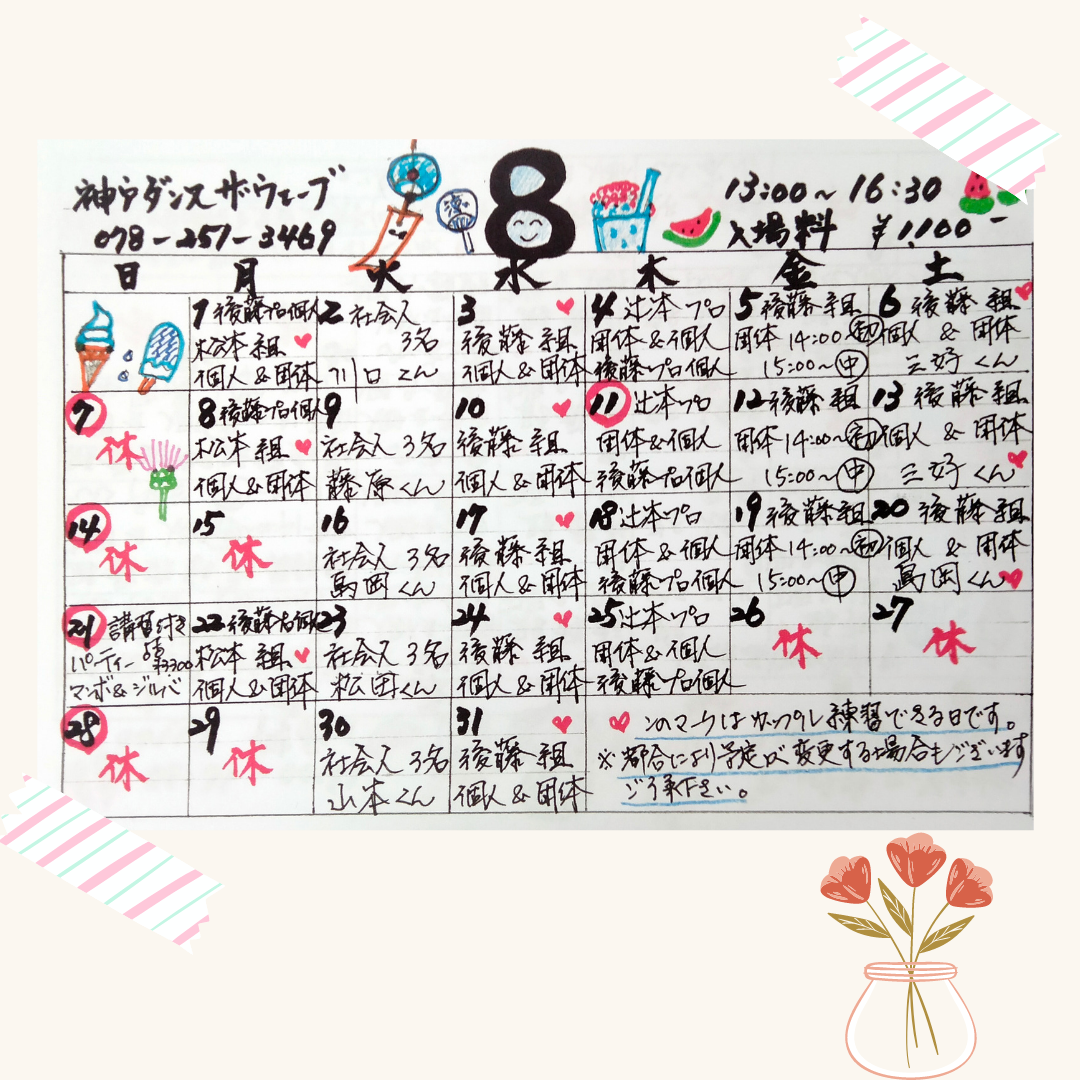 神戸ダンス ザ・ウェーブ
078-251-3469
涼
8
13:00~16:30
入場料 ¥1,100-
日 月 火 水 木 金 土
1 後藤プロ個人
松本組
個人&団体
2 社会人
3名
川口くん
3
後藤組
個人&団体
4 辻本プロ
団体&個人
後藤プロ個人
5 後藤組
団体14:00~初
15:00~中
6 後藤組
個人&団体
三好くん
7
休
8 後藤プロ個人
松本組
個人&団体
9
社会人3名
藤原くん
10
後藤組
個人&団体
11 辻本プロ
団体&個人
後藤プロ個人
12 後藤組
団体14:00~初
15:00~中
13 後藤組
個人&団体
三好くん
14
休
15
休
16
社会人3名
島岡くん
17
後藤組
個人&団体
18 辻本プロ
団体&個人
後藤プロ個人
19 後藤組
団体14:00~初
15:00~中
20 後藤組
個人&団体
島岡くん
21 講習付き
パーティー ¥3300
マンボ&ジルバ
22 後藤プロ個人
松本組
個人&団体
23
社会人3名
松田くん
24
後藤組
個人&団体
25 辻本プロ
団体&個人
後藤プロ個人
26
休
27
休
28
休
29
休
30
社会人3名
山本くん
31
後藤組
個人&団体
このマークはカップル練習できる日です。
※都合により予定が変更する場合もございます
ご了承下さい。